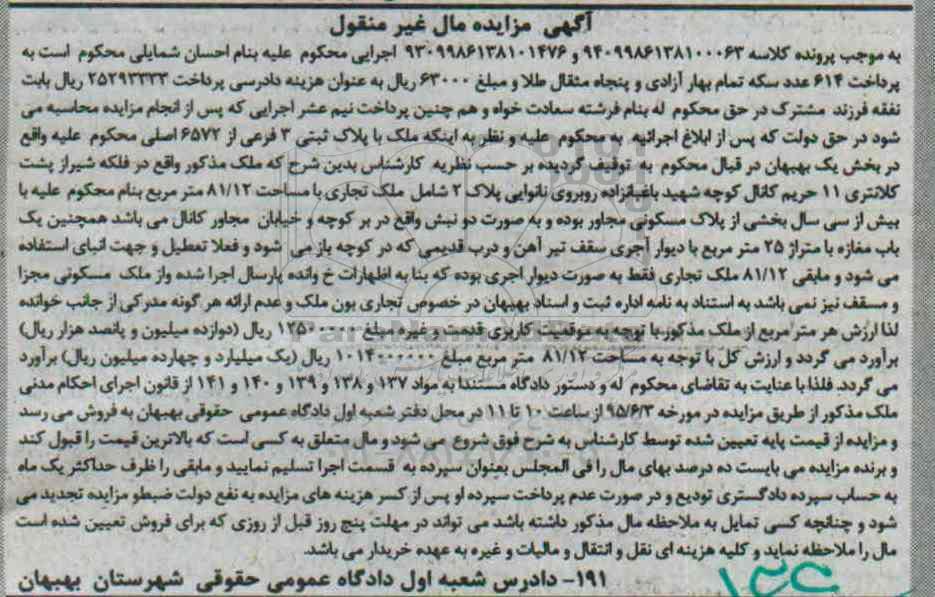 آگهی مزایده مال غیر منقول
به موجب پرونده کلاسه ۹۴۰۹۹۸۶۱۳۸۱۰۰۰۶۳ و ۹۳۰۹۹۸۶۱۳۸۱۰۱۴۷۶ اجرایی محکوم علیه بنام احسان شمایلی محکوم است به
پرداخت ۶۱۴ عدد سکه تمام بهار آزادی و پنجاه مثقال طلا و مبلغ ۶۳۰۰۰ ریال به عنوان هزینه دادرسی پرداخت ۲۵۲۹۳۳۳۳ ریال بابت
نفقه فرزند مشترک در حق محکوم له بنام فرشته سعادت خواه و هم چنین پرداخت نیم عشر اجرایی که پس از انجام مزایده محاسبه می
شود در حق دولت که پس از ابلاغ اجرائیه به محکوم علیه و نظر به اینکه ملک با پلاک ثبتی ۳ فرعی از ۶۵۷۲ اصلی محکوم علیه واقع
در بخش یک بهبهان در قبال محکوم به توقیف گردیده بر حسب نظریه کارشناس بدین شرح که ملک مذکور واقع در فلکه شیراز پشت
کلانتری ۱۱ حریم کانال کوچه شهید باغبانزاده روبروی نانوایی پلاک ۲ شامل ملک تجاری با مساحت ۸۱/۱۲ متر مربع بنام محکوم علیه با
بیش از سی سال بخشی از پلاک مسکونی مجاور بوده و به صورت دو نبش واقع در بر کوچه و خیابان مجاور کانال می باشد همچنین یک
باب مغازه با متراژ ۲۵ متر مربع با دیوار آجری سقف تیر آهن و درب قدیمی که در کوچه باز می شود و فعلا تعطیل و جهت انبای استفاده
می شود و مابقی ۸۱/۱۲ ملک تجاری فقط به صورت دیوار اجری بوده که بنا به اظهارات خ وانده پارسال اجرا شده واز ملک مسکونی مجزا
و مسقف نیز نمی باشد به استناد به نامه اداره ثبت و اسناد بهبهان در خصوص تجاری بون ملک و عدم ارائه هر گونه مدرکی از جانب خوانده
لذا ارزش هر متر مربع از ملک مذکور با توجه به موقعیت کاربری قدمت و غیره مبلغ ۱۲۵۰۰۰۰۰ ریال (دوازده میلیون و پانصد هزار ریال)
برآورد می گردد و ارزش کل با توجه به مساحت ۸۱/۱۲ متر مربع مبلغ ۱۰۱۴۰۰۰۰۰۰ ریال (یک میلیارد و چهارده میلیون ریال) برآورد
می گردد. فلذا با عنایت به تقاضای محکوم له و دستور دادگاه مستندا به مواد ۱۳۷ و ۱۳۸ و ۱۳۹ و ۱۴۰ و ۱۴۱ از قانون اجرای احکام مدنی
ملک مذکور از طریق مزایده در مورخه ۹۵/۶/۳ از ساعت ۱۰ تا ۱۱ در محل دفتر شعبه اول دادگاه عمومی حقوقی بهبهان به فروش می رسد
و مزایده از قیمت پایه تعیین شده توسط کارشناس به شرح فوق شروع می شود و مال متعلق به کسی است که بالاترین قیمت را قبول کند
و برنده مزایده می بایست ده درصد بهای مال را فی المجلس بعنوان سپرده به قسمت اجرا تسلیم نمایید و مابقی را ظرف حداکثر یک ماه
به حساب سپرده دادگستری تودیع و در صورت عدم پرداخت سپرده او پس از کسر هزینه های مزایده به نفع دولت ضبطو مزایده تجدید می
شود و چنانچه کسی تمایل به ملاحظه مال مذکور داشته باشد می تواند در مهلت پنج روز قبل از روزی که برای فروش تعیین شده است
مال را ملاحظه نماید و کلیه هزینه ای نقل و انتقال و مالیات و غیره به عهده خریدار می باشد.
۱۹۱- دادرس شعبه اول دادگاه عمومی حقوقی شهرستان بهبهان